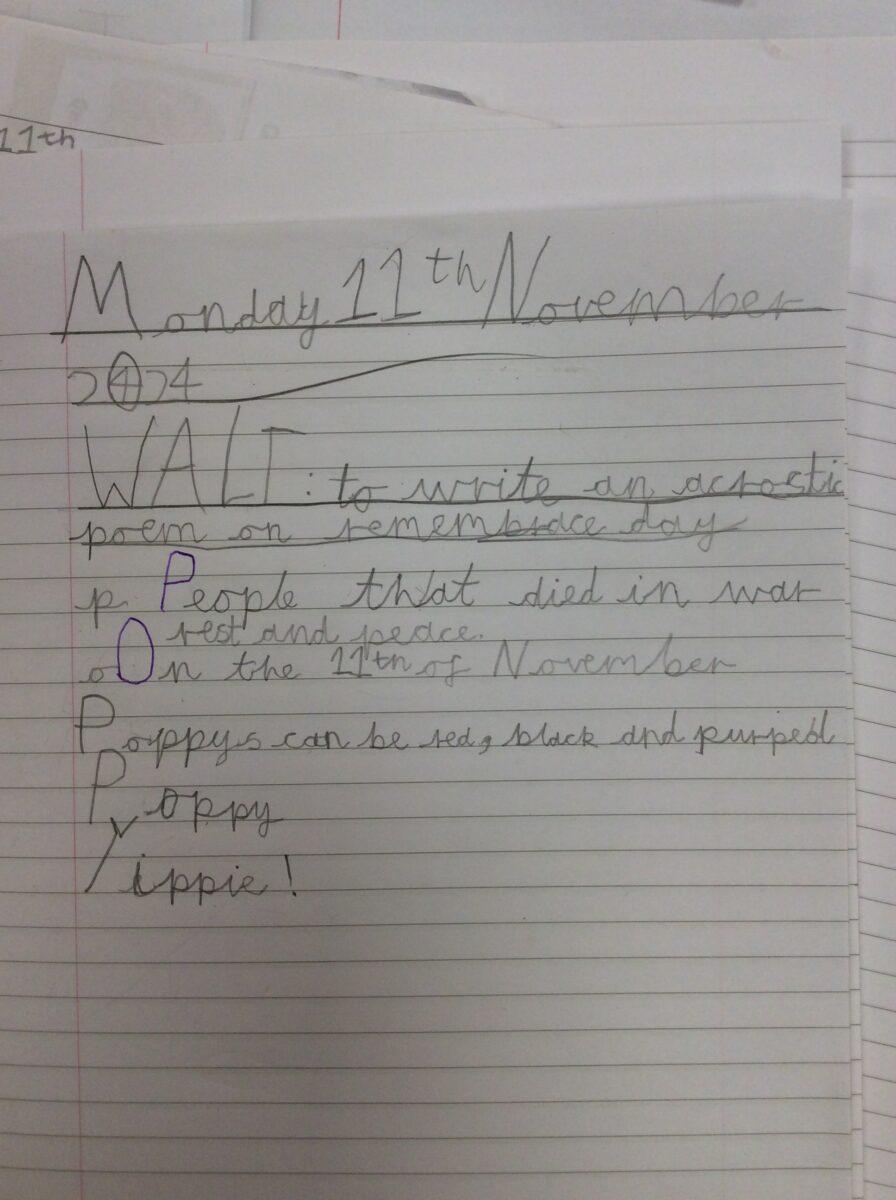 11th
Monday 11th November
2024
WALT: to write an acrostic
poem on remembrace day
p People that died in war
rest and peace.
o On the 11th of November
Poppys can be red, black and purpel
Poppy
Yippie!